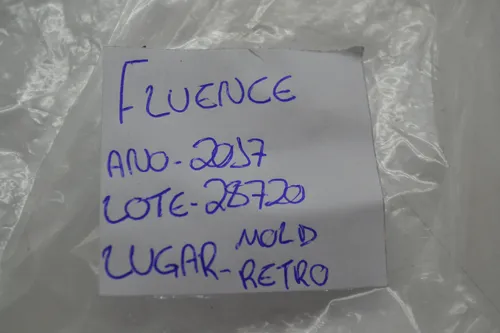 FLUENCE
ANO-2017
LOTE-28720
LUGAR-MOLD
RETRO